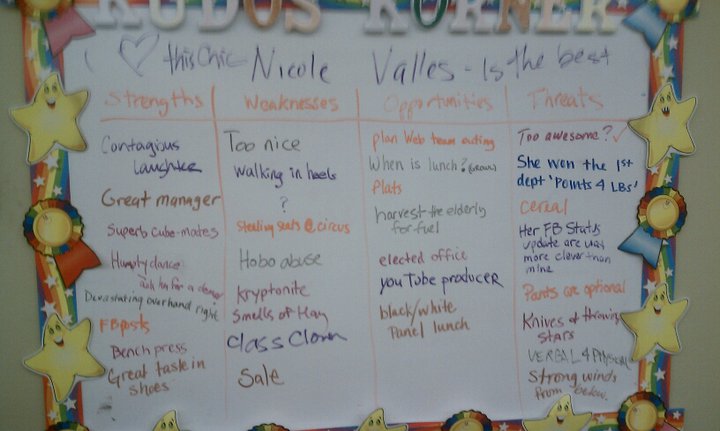 KUDOS KORNER
I ♡ this Chic Nicole Valles - Is the best
Strengths
Contagious
laughter
Great manager
Superb cube-mates
Humpty dance
Devastating overhand right
FB posts
Bench press
Great taste in
shoes
Weaknesses
Too nice
Walking in heels
?
Stealing seats @ circus
Hobo abuse
Kryptonite
Smells of Hay
Class Clown
Sale
Opportunities
plan Web team outing
When is lunch?
Flats
harvest the elderly
for fuel
elected office
you Tube producer
black/white
Panel lunch
Threats
Too awesome? ✓
She won the 1st
dept 'Points 4 LBs'
cereal
Her FB Status
update are way
more clever than
mine
Pants are optional
Knives & throwing
stars
VERBAL & PHYSICAL
Strong winds
from below.